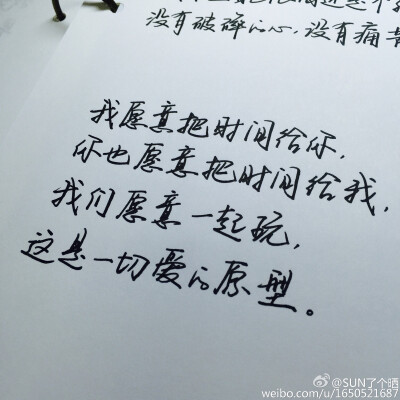 没有破碎的心,没有痛苦
我愿意把时间给你,
你也愿意把时间给我,
我们愿意一起玩,
这是一切爱的原型。
@SUN了个晒
weibo.com/u/1650521687